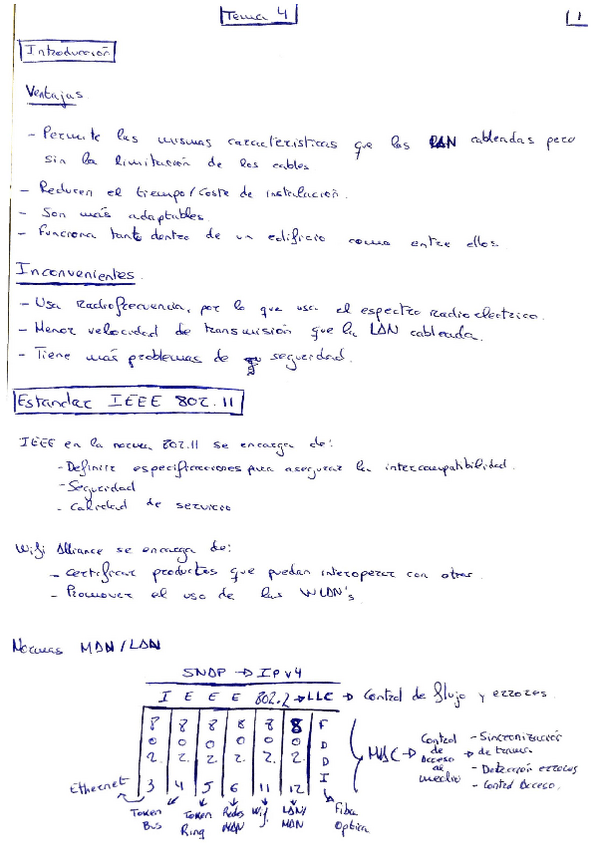 Tema 4
1
Introducción
Ventajas
- Permite las mismas características que las LAN cableadas pero
sin la limitación de los cables
- Reducen el tiempo/coste de instalación.
- Son más adaptables
- Funciona tanto dentro de un edificio como entre ellos.
Inconvenientes.
- Usa radiofrecuencia, por lo que usa el espectro radioelectrico.
- Menor velocidad de transmisión que la LAN cableada.
- Tiene más problemas de seguridad.
Estandar IEEE 802.11
IEEE en la norma 802.11 se encarga de:
- Definir especificaciones para asegurar la intercompatibilidad.
- Seguridad
- Calidad de servicio
Wifi Alliance se encarga de:
- certificar productos que puedan interoperar con otros.
- Promover el uso de las WLAN's
Normas MAN/LAN
SNAP → IPv4
I E E E 802.2 → LLC → Control de flujo y errores
8 8 8 8 8 8 F
0 0 0 0 0 0 D
2. 2. 2. 2. 2. 2. D
Ethernet 3 4 5 6 11 12 I
Token Bus
Token Ring
Redes MAN
Wifi
LAN/MAN
Fibra Optica
MAC → Control de Acceso al medio
- Sincronización
de tramas.
- Detección errores
- Control Acceso.